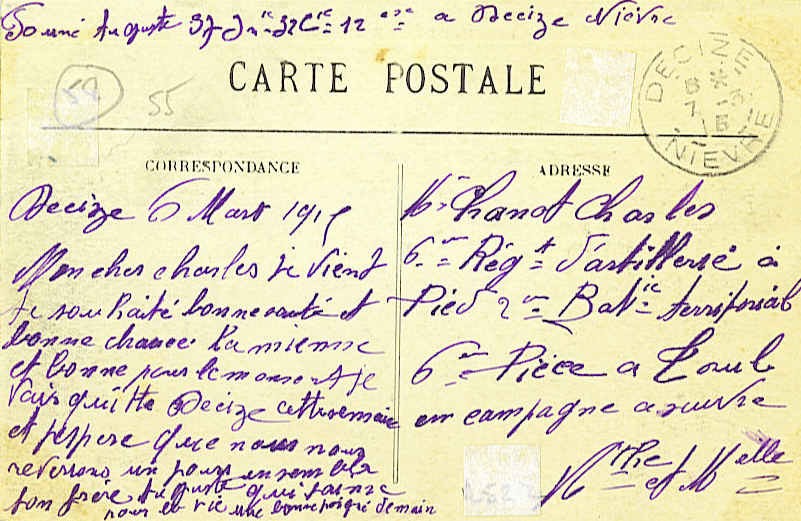 Auguste 37 à Decize Nièvre
CARTE POSTALE
55
DECIZE
NIEVRE
CORRESPONDANCE
ADRESSE
Decize 6 Mars 1915
Mon cher charles je vient
te souhaité bonne santé et
bonne chance la mienne
et bonne pour le moment je
vais quitté Decize cette semaine
et j'espere que nous nous
reverrons un jour ensemble
ton frère Auguste qui t'aime
pour la vie une bonne poigné de main
Mr Chanot Charles
6me Régt d'artillerie à
Pied 2me Batie territorial
6me Pièce a Toul
en campagne a suivre
Mthe et Moselle